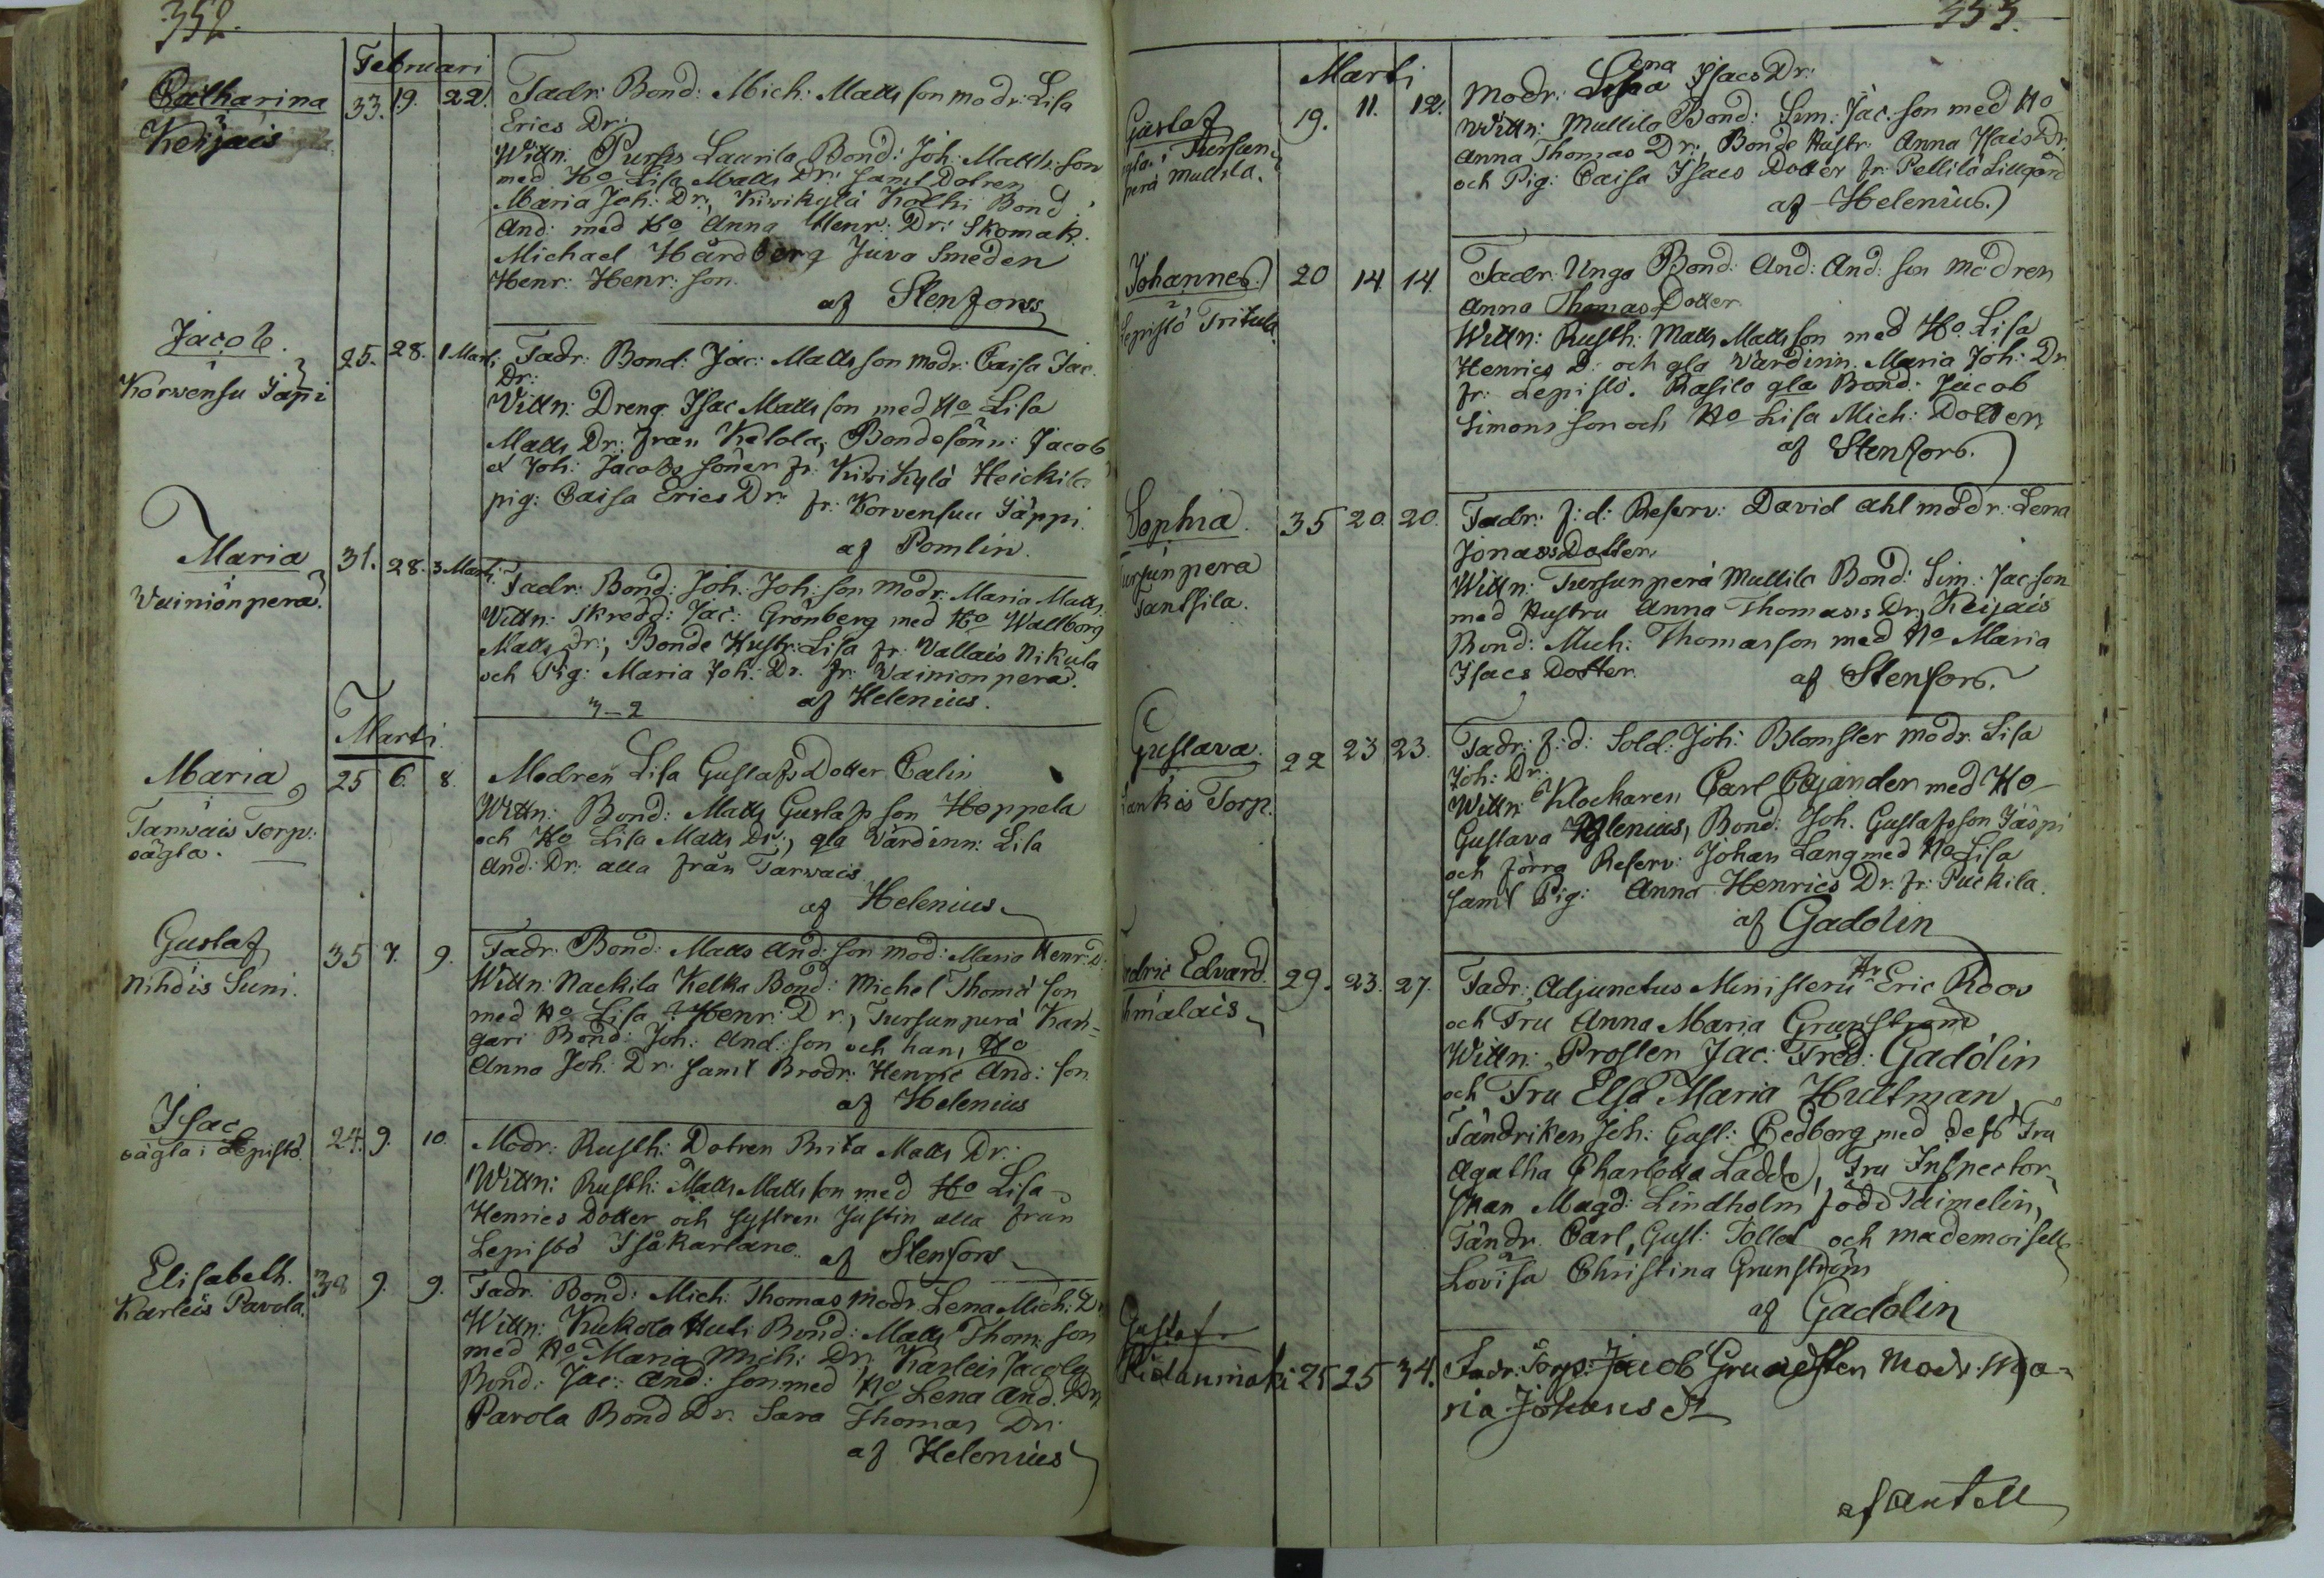 352.
Februari
Catharina
i
Keijais
33. 19. 22.
Fadr: Bond: Mich: Matts son modr: Lisa
Erics Dr:
Wittn: Laurila Bond: Joh: Matts: son
med Ho Lisa Matts Dr: samt Dotren
Maria Joh: Dr:, Kivikylä Kolhi Bond:
And: med Ho Anna Henr: Dr: Skomak:
Michael Hårdberg Juva Smeden
Henr: Henr: son.
af Stenfors
Jacob.
i
Korvensu Jäpi
25. 28. 1 Marti
Fadr: Bond: Jac: Matts son modr: Caisa Jac.
Dr:
Vittn: Dreng Isac Matts son med Ho Lisa
Matts Dr: från Ketola, Bondesönn: Jacob
et Joh: Jacobs söner fr: Kivikylä Heickilä
pig: Caisa Erics Dr: fr: Korvensuu Jäppi.
af Pomlin.
Maria
i
Vainionperä.
31. 28. 3 Marti
Fadr: Bond: Joh: Joh: son modr: Maria Matts
Vittn: Skredd: Jac: Grönberg med Ho Wallborg
Matts Dr:, Bonde Hustr: Lisa fr: Vallais Nikula
och Pig: Maria Joh: Dr. fr: Vainionperä.
3-2 af Helenius.
Marti
Maria
i
Tarwais Torp:
oägta.
25 6. 8.
Modren Lisa Gustafs Dotter Calin
Wittn: Bond: Matts Gustafs son Hoppela
och Ho Lisa Matts Dr:, gla Värdinn: Lisa
And: Dr: alla från Tarwais
af Helenius
Gustaf
i
Nihdis Suni.
35 7. 9.
Fadr: Bond: Matts And: son mod: Maria Henr: D:
Wittn: Nackila Kelka Bond: Michel Thomæ son
med Ho Lisa Henr: Dr:, Tursunperä Kan=
gari Bond: Joh: And: son och hans Ho
Anna Joh: Dr: samt Brodr: Henric And: son
af Helenius
Isac
oägta i Lepistö.
24. 9. 10.
Modr: Rusth: Dotren Brita Matts Dr:
Wittn: Rusth: Matts Matts son med Ho Lisa
Henrics Dotter och systren Justin alla från
Lepistö Isåkartano. af Stenfors
Elisabeth.
Karleis Pavola.
38 9. 9.
Fadr: Bond: Mich: Thomas modr: Lena Mich: Dr
Wittn: Kukola Huti Bond: Matts Thom: son
med Ho Maria Mich: Dr: Karleis Jacola
Bond: Jac: And: son med Ho Lena And: Dr
Pavola Bond Dr. Sara Thomas Dr:
af Helenius
353.
Marti
Gustaf
gla i Tursun=
perä Mullila.
19. 11. 12.
Modr: Lena Isacs Dr:
Wittn: Mullila Bond: Sim: Jac: son med Ho
Anna Thomas Dr:, Bonde Hustr: Anna Dr.
och Pig: Caisa Isacs Dotter fr: Pellilä Lillgård
af Helenius.
Johannes.
Lepistö Tritula.
20 14 14
Fadr: Unga Bond: And: And: son modren
Anna Thomas Dotter
Wittn: Rusth: Matts Matts son med Ho Lisa
Henrics D: och gla Värdinn: Maria Joh: Dr.
fr: Lepistö. Rasila gla Bond: Jacob
Simons son och Ho Lisa Mich: Dotter
af Stenfors.
Sophia.
Tursunperä
Tantsila.
35 20. 20.
Fadr: f: d: Reserv: David Ahl modr: Lena
Jonas Dotter
Wittn: Tursunperä Mullila Bond: Sim: Jac son
med Hustru Anna Thomas Dr:, Keijais
Bond: Mich: Thomas son med Ho Maria
Isacs Dotter. af Stenfors.
Gustava.
Torp.
22 23 23.
Fadr: f: d: Sold: Joh: Blomster modr: Lisa
Joh: Dr:
Wittn: Klockaren Carl Cajander med Ho
Gustava Helenius, Bond: Joh: Gustafsson Jäspi
och förra Reserv: Johan Lang med Ho Lisa
samt Pig: Anna Henrics Dr. fr: Puckila.
af Gadolin
edric Edvard.
hmälais
29. 23. 27.
Fadr: Adjunctus Ministerii Hr Eric Roos
och Fru Anna Maria Grunström
Wittn: Prosten Jac: Fred: Gadolin
och Fru Elsa Maria Hultman,
Fändriken Joh: Gust: Cedborg med dess Fru
Agatha Charlotta Ladde, Fru Inspector=
skan Magd: Lindholm född Taimelin,
Fändr. Carl Gust: Tollet och mademoiselle
Lovisa Christina Grunström
af Gadolin
Gustaf
Ridanmäki
25 25 34.
Fadr. Torp: Jacob Grundsten Modr. Ma=
ria Johans Dr
af Antell